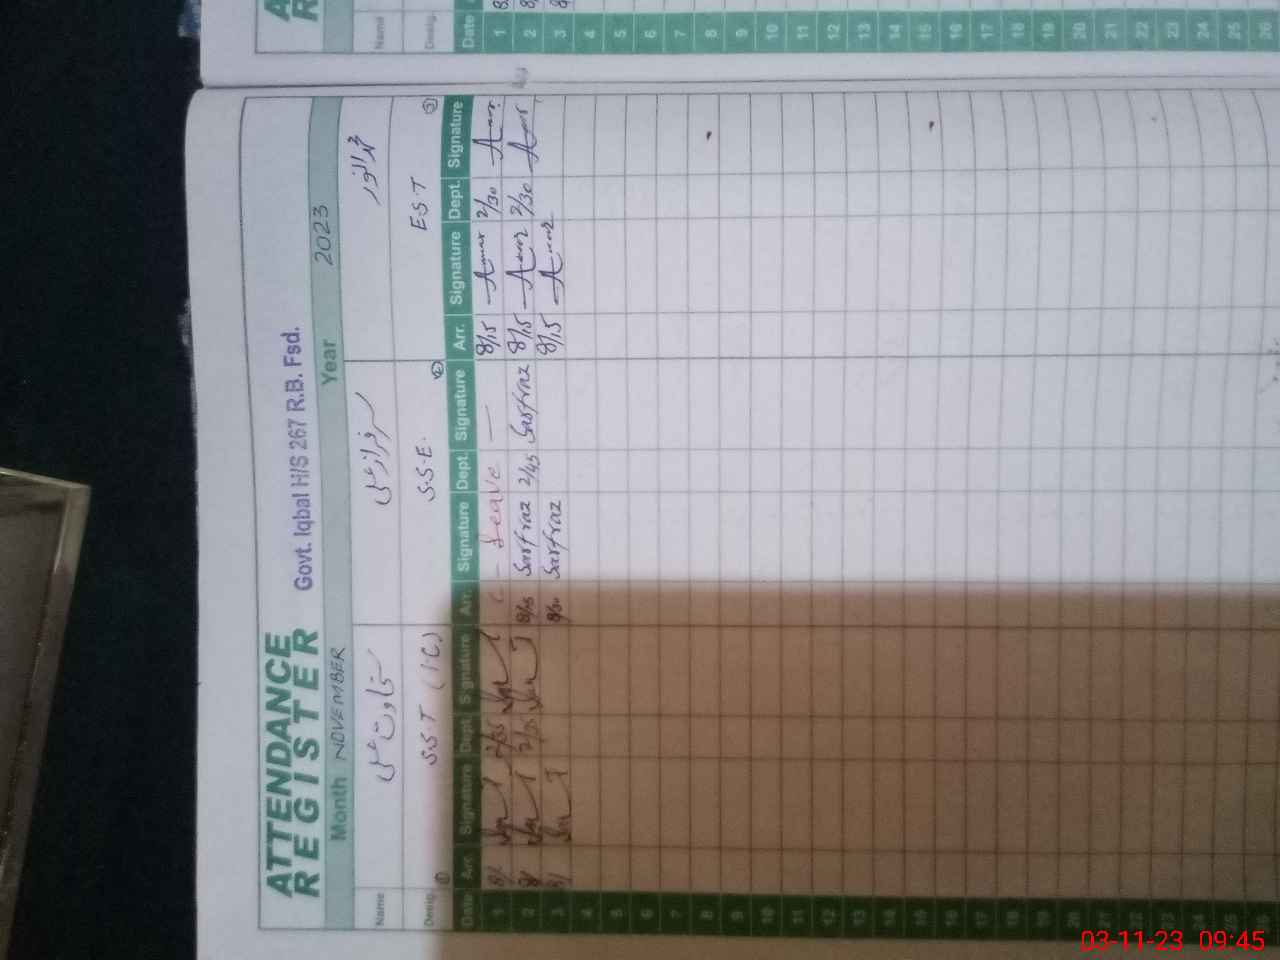 ATTENDANCE
REGISTER
Govt. Iqbal H/S 267 R.B. Fsd.
Month NOVEMBER Year 2023
Name سخاوت علی سرفراز علی محمد انور
Desig. S.S.T (I.C) S.S.E. E.S.T
Date Arr. Signature Dept. Signature Arr. Signature Dept. Signature Arr. Signature Dept. Signature
1 8/ 2/35 Leave 8/15 Anwar 2/30
2 8/ 2/35 8/25 Sarfraz 2/45 Sarfraz 8/15 Anwar 2/30
3 8/ 8/30 Sarfraz 8/15 Anwar
4
5
6
7
8
9
10
11
12
13
14
15
16
17
18
19
20
21
22
23
24
25
26
Name
Desig.
Date
1
2
3
4
5
6
7
8
9
10
11
12
13
14
15
16
17
18
19
20
21
22
23
24
25
26
03-11-23 09:45